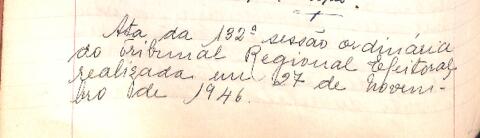 Ata da 132ª sessão ordinária
do Tribunal Regional Eleitoral,
realizada em 27 de Novem-
bro de 1946.